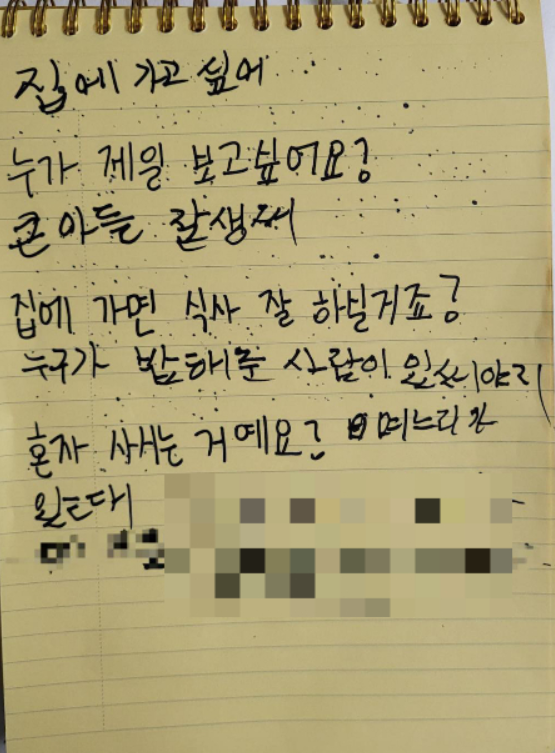 집에 가고 싶어
누가 제일 보고싶어요?
큰아들 잘생겨
집에 가면 식사 잘 하실거죠?
누구가 밥해준 사람이 있서야지
혼자 사시는 거예요? 며느리가
있는대